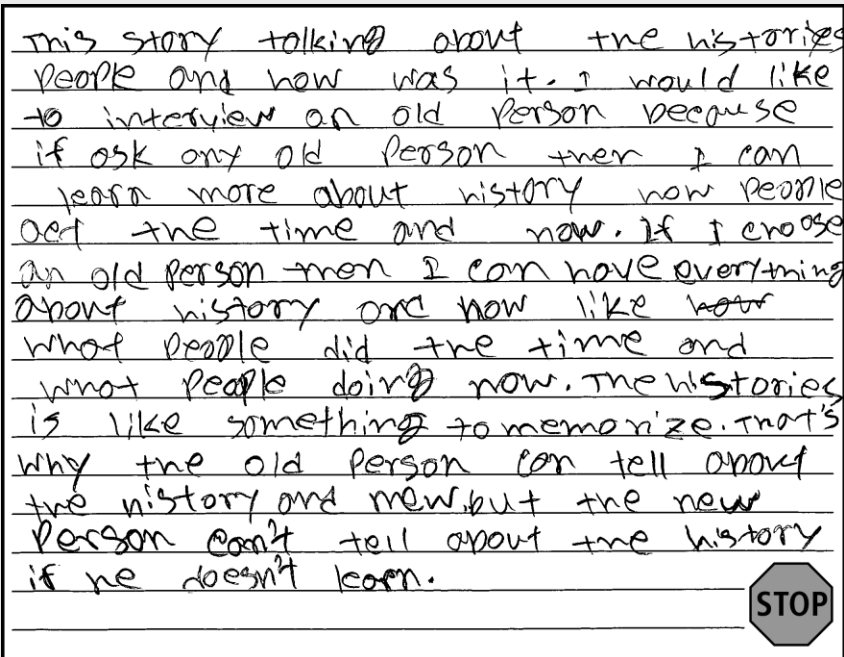 This story talking about the histories
people and how was it. I would like
to interview an old person because
if ask any old person then I can
learn more about history how people
act the time and now. If I choose
an old person then I can have everything
about history and how like how
what people did the time and
what people doing now. The histories
is like something to memorize. That's
why the old person can tell about
the history and new, but the new
person can't tell about the history
if he doesn't learn.
STOP